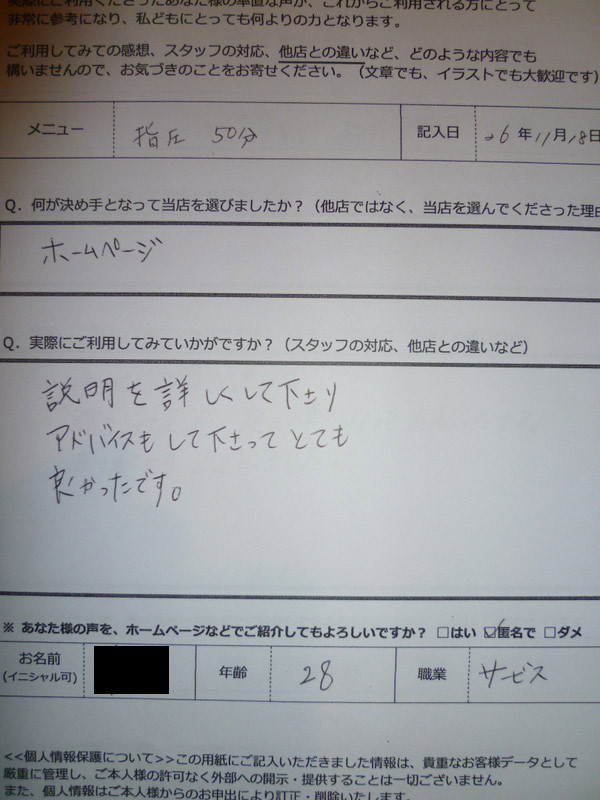 実際にご利用くださったあなた様の率直な声が、これからご利用される方にとって
非常に参考になり、私どもにとっても何よりの力となります。
ご利用してみての感想、スタッフの対応、他店との違いなど、どのような内容でも
構いませんので、お気づきのことをお寄せください。（文章でも、イラストでも大歓迎です）
メニュー 指圧 50分 記入日 26年11月18日
Q．何が決め手となって当店を選びましたか？（他店ではなく、当店を選んでくださった理由
ホームページ
Q．実際にご利用してみていかがですか？（スタッフの対応、他店との違いなど）
説明を詳しくして下さり
アドバイスもして下さってとても
良かったです。
※ あなた様の声を、ホームページなどでご紹介してもよろしいですか？ □はい ☑匿名で □ダメ
お名前
(イニシャル可) 年齢 28 職業 サービス
<<個人情報保護について>>この用紙にご記入いただきました情報は、貴重なお客様データとして
厳重に管理し、ご本人様の許可なく外部への開示・提供することは一切ございません。
また、個人情報はご本人様からのお申出により訂正・削除いたします。